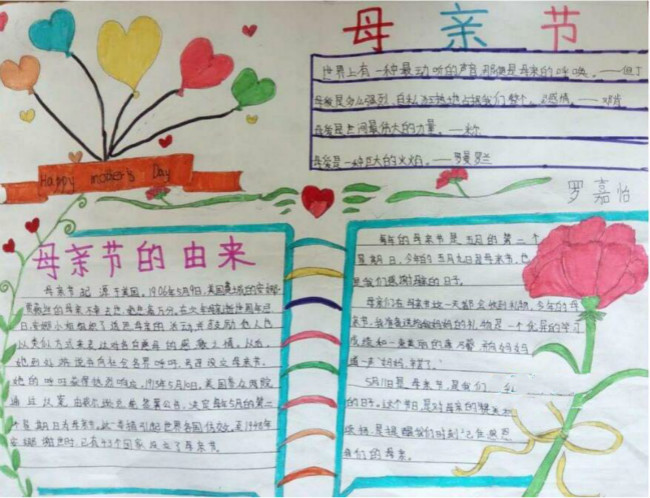 母亲节
世界上有一种最动听的声音那便是母亲的呼唤。——但丁
母爱是多么强烈、自私、狂热地占据我们整个心灵的感情。——邓肯
母爱是世间最伟大的力量。——米尔
母爱是一种巨大的火焰。——罗曼罗兰
Happy mother's Day
罗嘉怡
母亲节的由来
母亲节起源于美国。1906年5月9日,美国费城的安娜
的母亲不幸去世,她悲痛万分。在次年母亲逝世周年忌
日,安娜小姐组织了追思母亲的活动,并鼓励他人也
以类似方式来表达对各自慈母的感激之情。从后,
她到处游说并向社会各界呼吁,号召设立母亲节。
她的呼吁获得热烈响应。1913年5月10日,美国参众两院
通过决案,由威尔逊总统签署公告,决定每年5月的第二
个星期日为母亲节。这一举措引起世界各国仿效,至1948年
安娜谢世时,已有43个国家设立了母亲节。
每年的母亲节是五月的第二个
星期日,今年的五月九日是母亲节,也
是我们感谢母亲的日子。
母亲们在母亲节这一天都会收到礼物,今年的母
亲节,我准备送给妈妈的礼物是一个优异的学习
成绩和一束美丽的康乃馨,祝妈妈
道一声"妈妈,辛苦了。"
5月11日是母亲节,是我们
的日子。这个节日是对母亲的
是提醒我们时刻
我们的母亲。